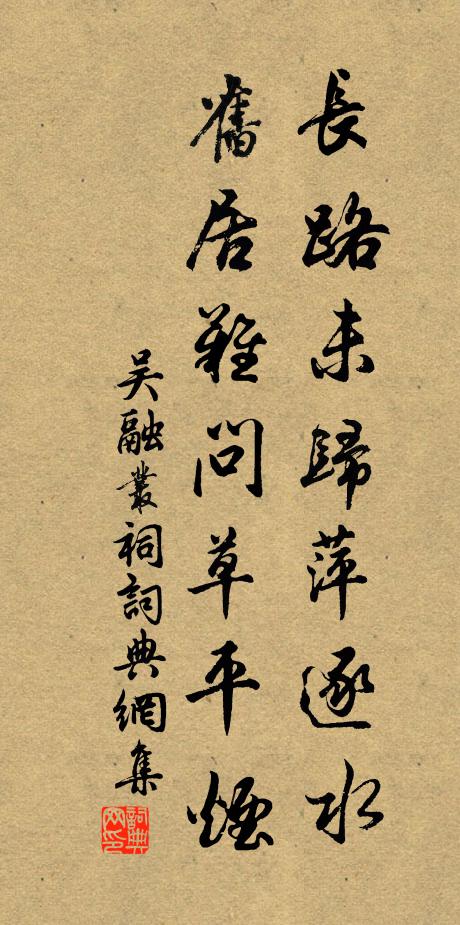 長路未歸萍逐水
舊居難問草平煙
吳融叢祠詞典網集
詞典網印